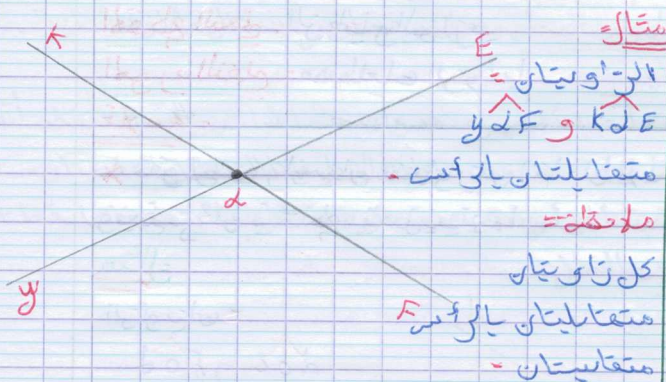 مثال =
الزاويتان =
KαE و yαF
متقابلتان بالرأس -
ملاحظة =
كل زاويتان
متقابليتان بالرأس
متقايستان -
K
E
α
y
F